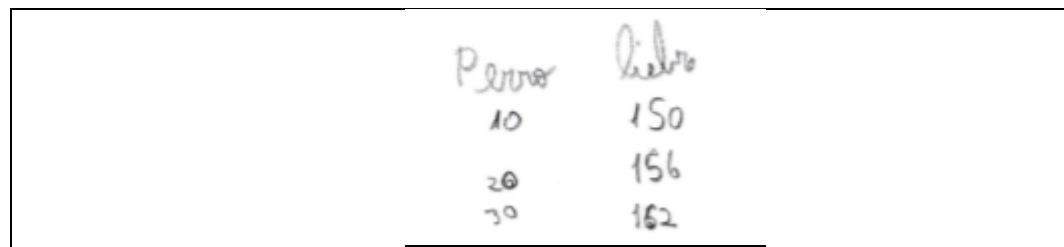 Perro liebre
10 150
20 156
30 162